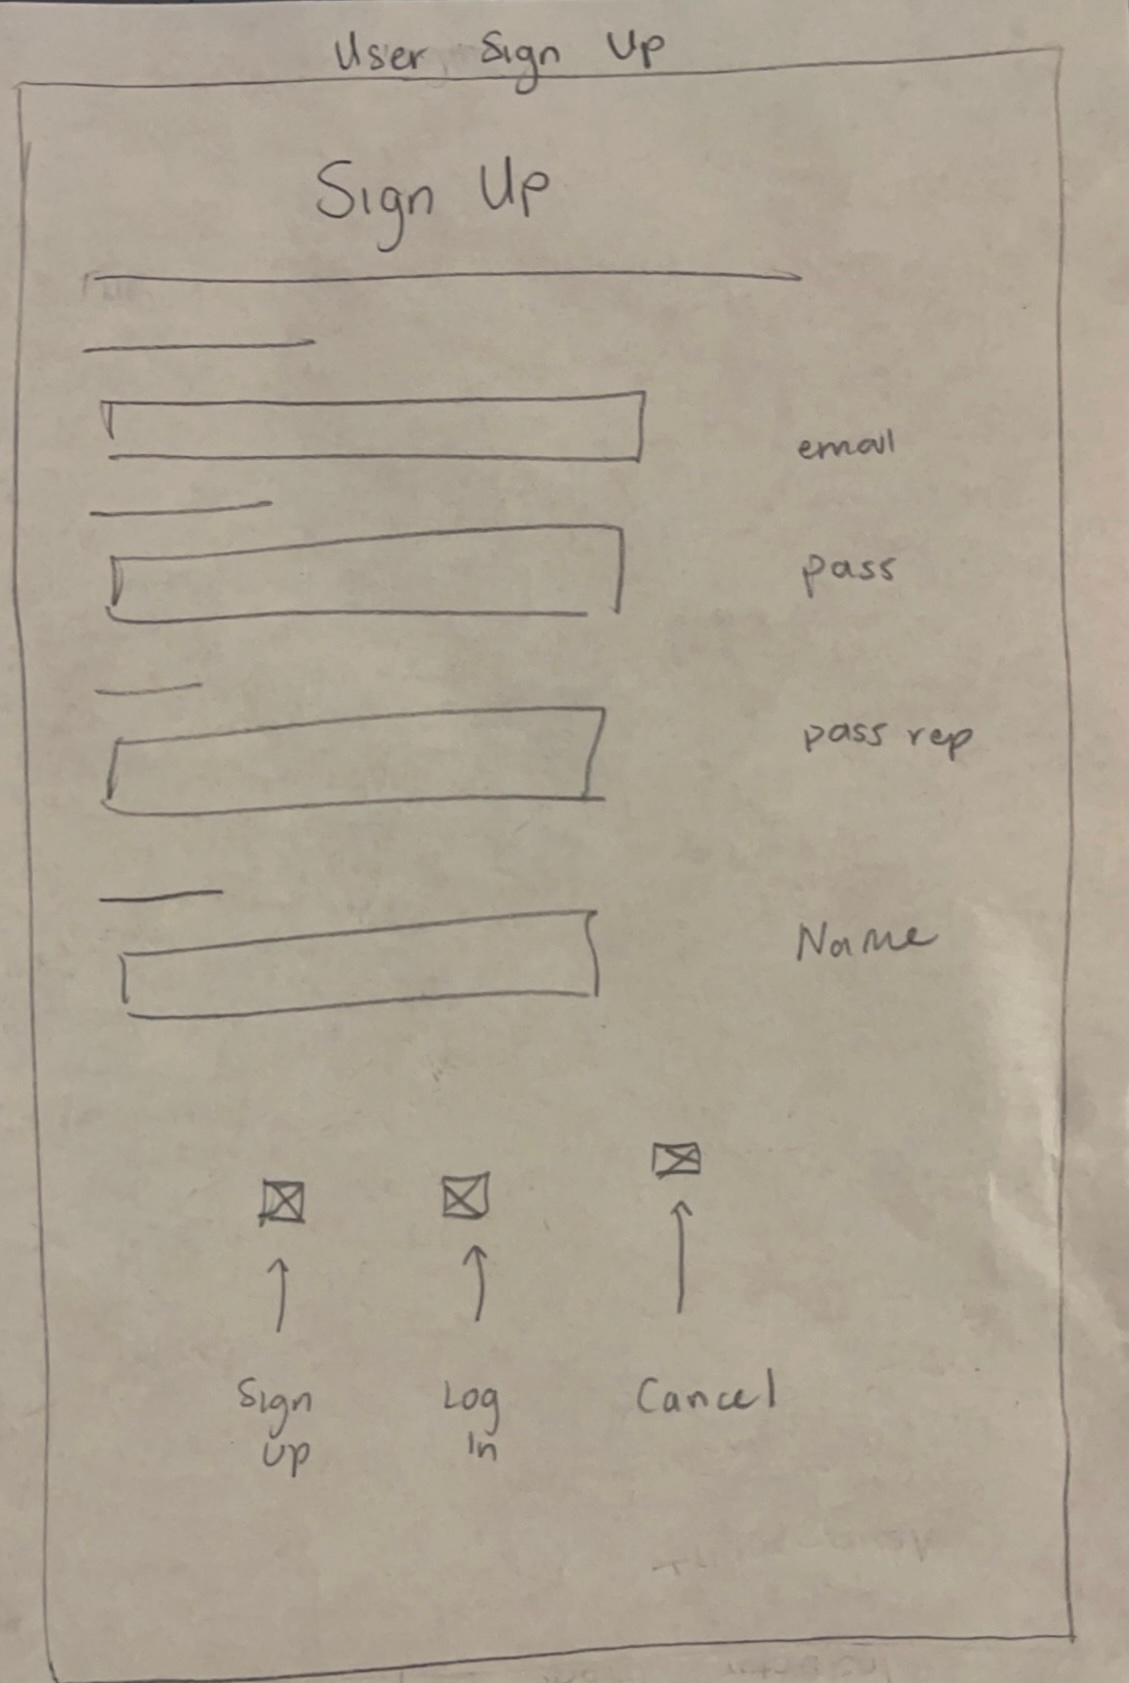 User Sign Up
Sign Up
email
pass
pass rep
Name
Sign
Up
Log
In
Cancel